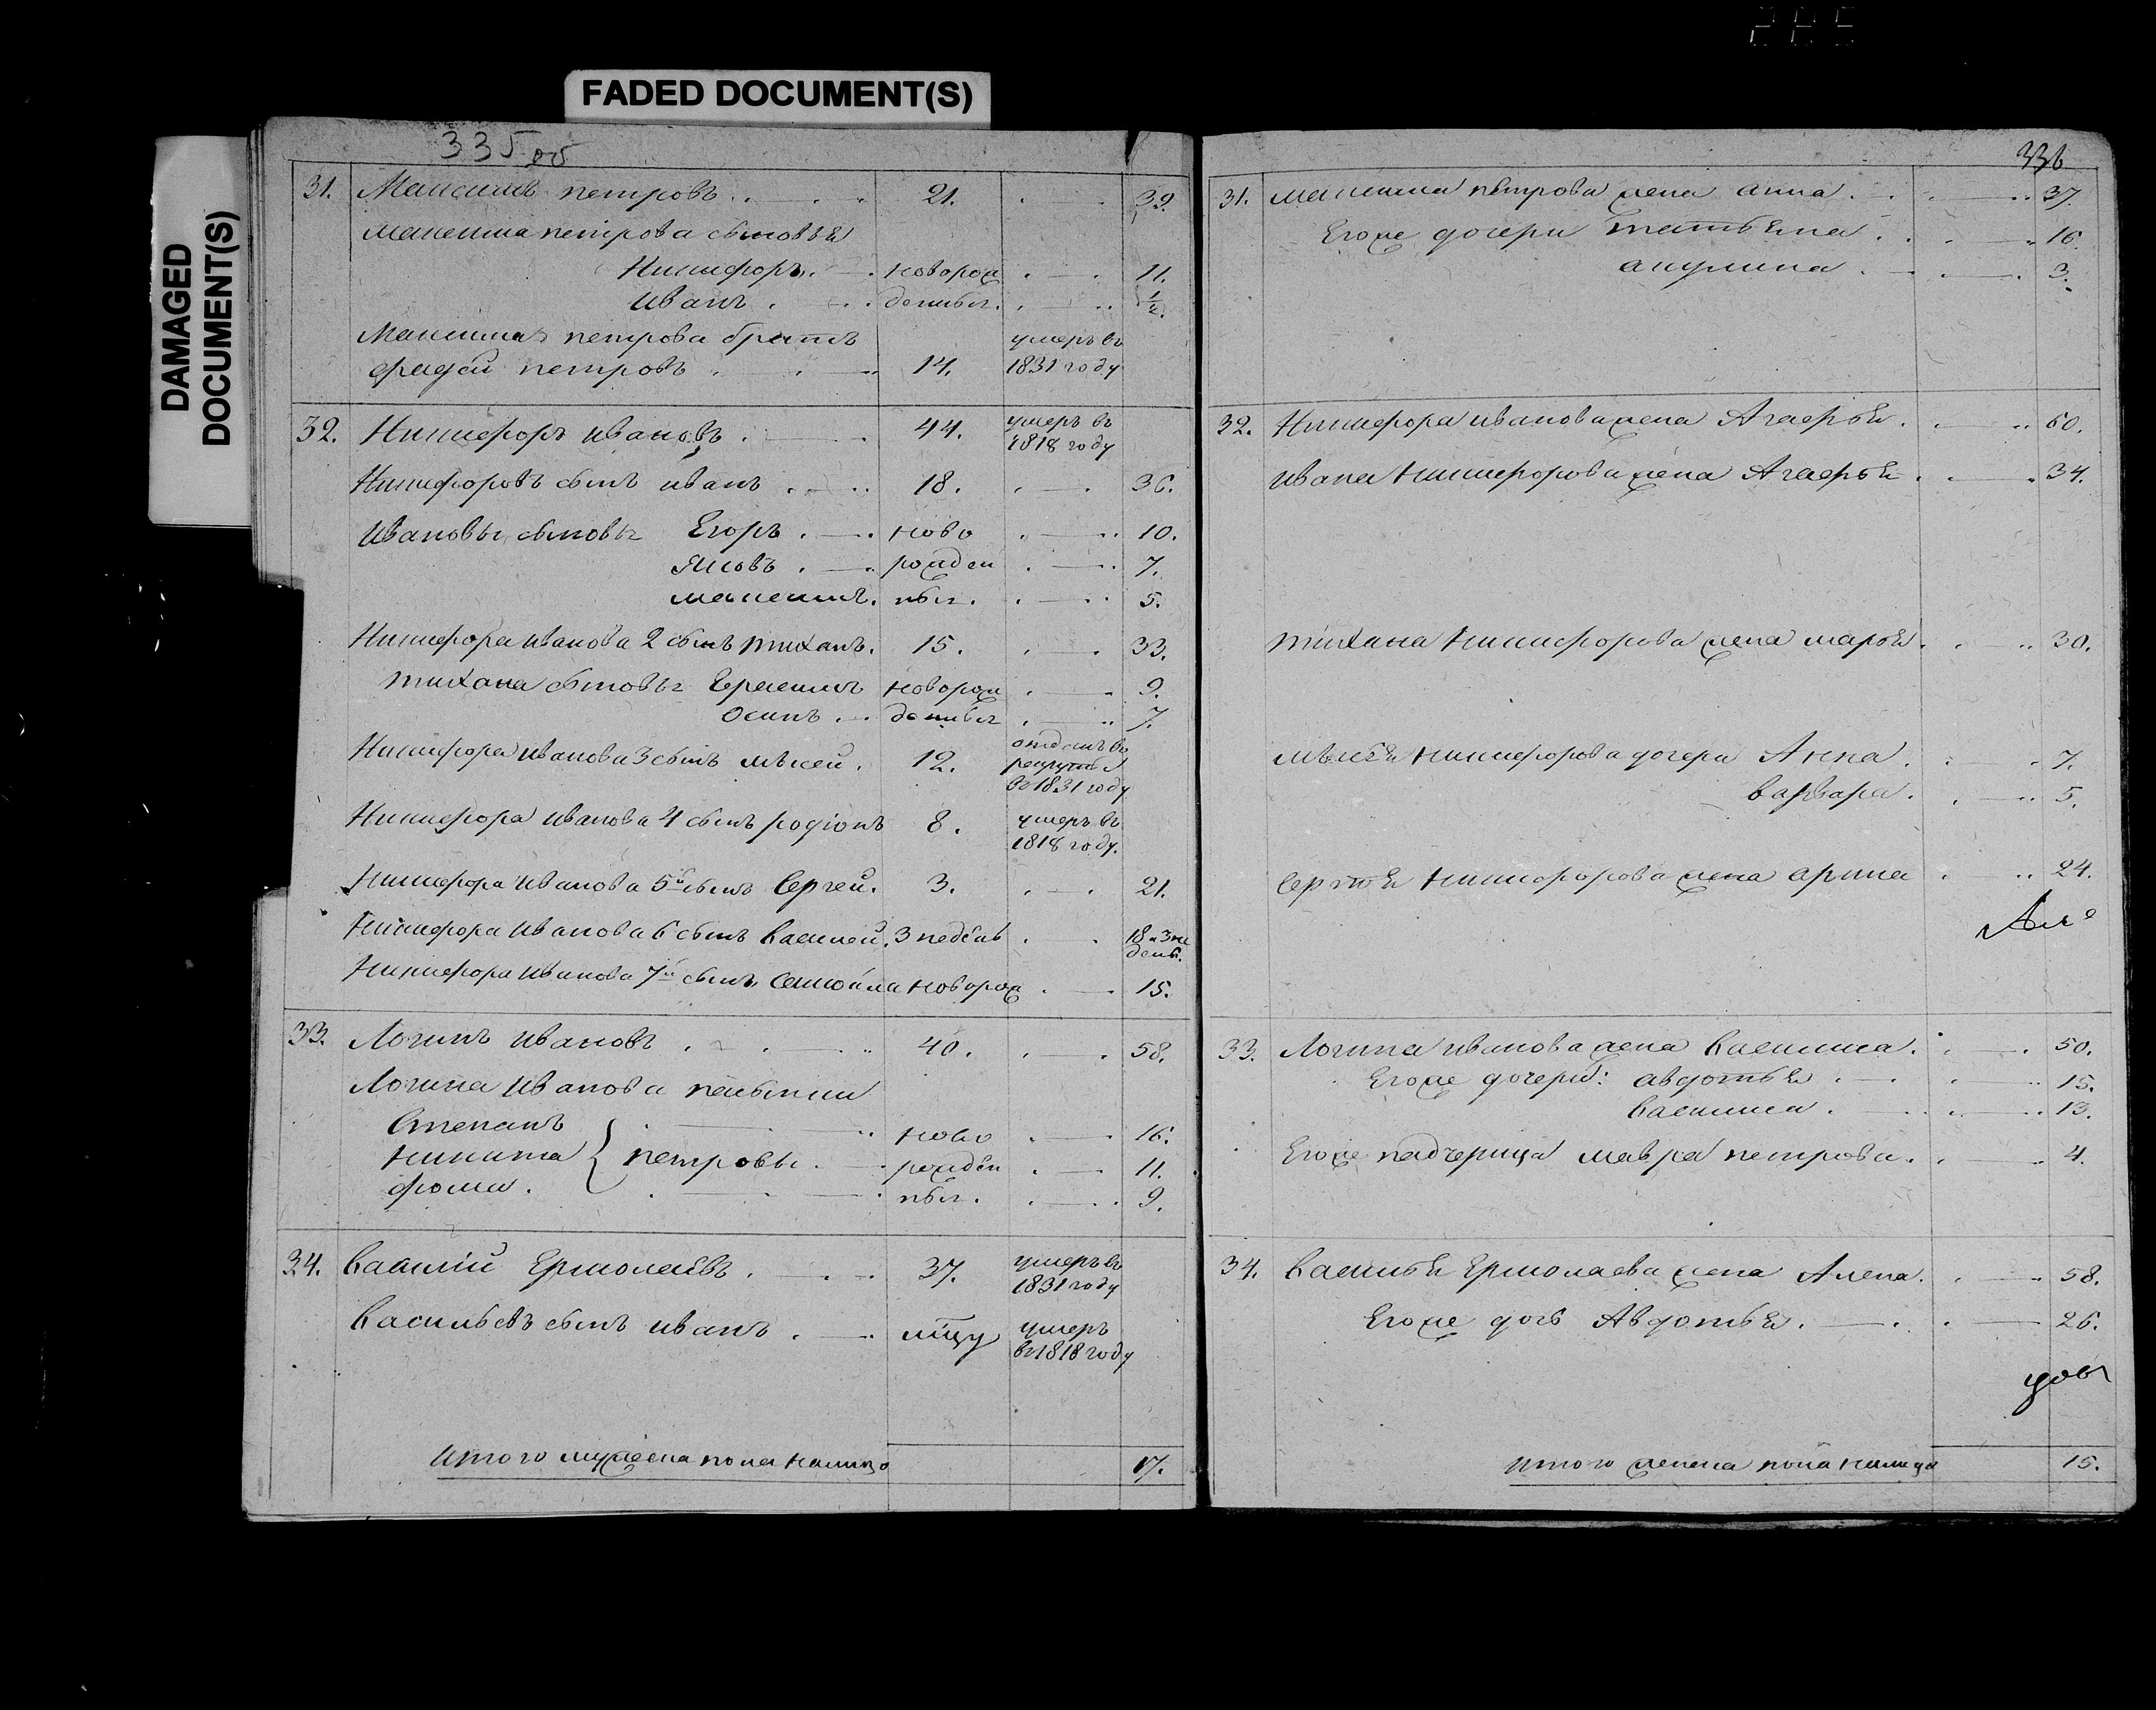 FADED DOCUMENT(S)
DAMAGED
DOCUMENT(S)
335 об
31. Максимъ петровъ 21. 39.
Максима петрова сыновья
Никифоръ новорож 11.
Иванъ денныя. 1/2.
Максима петрова братъ умеръ въ
фадей петровъ 14. 1831 году
32. Никифоръ ивановъ 44. умеръ въ 1818 году
Никифоровъ сынъ иванъ 18. 36.
Ивановы сыновья Егоръ ново 10.
Яковъ рожден 7.
максимъ. ныя. 5.
Никифора иванова 2 сынъ тиханъ. 15. 33.
тихана сыновья Герасимъ новорож 9.
Осипъ денныя 7.
Никифора иванова 3 сынъ мъкей. 12. отданъ въ рекруты въ 1831 году
Никифора иванова 4 сынъ родіонъ 8. умеръ въ 1818 году.
Никифора иванова 5й сынъ Сергей. 3. 21.
Никифора иванова 6 сынъ василей. 3 недель 18 и 3 не дель.
Никифора иванова 7й сынъ самойла новорож 15.
33. Логинъ ивановъ 40. 58.
Логина иванова пасынки
Степанъ ново 16.
Никита } петровы рожден 11.
фома. ныя. 9.
34. Василій Ермолаевъ 37. умеръ въ 1831 году
Васильевъ сынъ иванъ умеръ въ 1818 году
итого мужеска пола налицо 17.
336
31. максима петрова жена анна 37.
Егоже дочери татьяна 16.
акулина 3.
32. Никифора иванова жена Агафья 60.
ивана Никифорова жена Агафья 34.
тихана Никифорова жена марья 30.
мъкея никифорова дочери Анна 7.
варвара 5.
Сергея никифорова жена арина 24.
33. Логина иванова жена василиса 50.
Егоже дочери: авдотья 15.
василиса 13.
Егоже падчерица мавра петрова 4.
34. Василья Ермолаева жена Алена 58.
Егоже дочь Авдотья 26.
итого женска пола налицо 15.